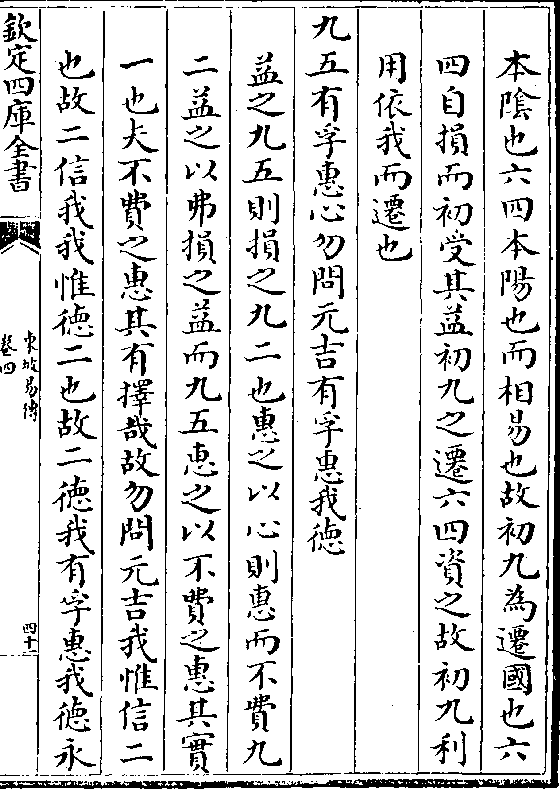 本陰也六四本陽也而相易也故初九為遷國也六
四自損而初受其益初九之遷六四資之故初九利
用依我而遷也
九五有孚惠心勿問元吉有孚惠我德
益之九五則損之九二也惠之以心則惠而不費九
二益之以弗損之益而九五惠之以不費之惠其實
一也夫不費之惠其有擇哉故勿問元吉我惟信二
也故二信我我惟德二也故二德我有孚惠我德永
欽定四庫全書
東坡易傳
卷四
四十一